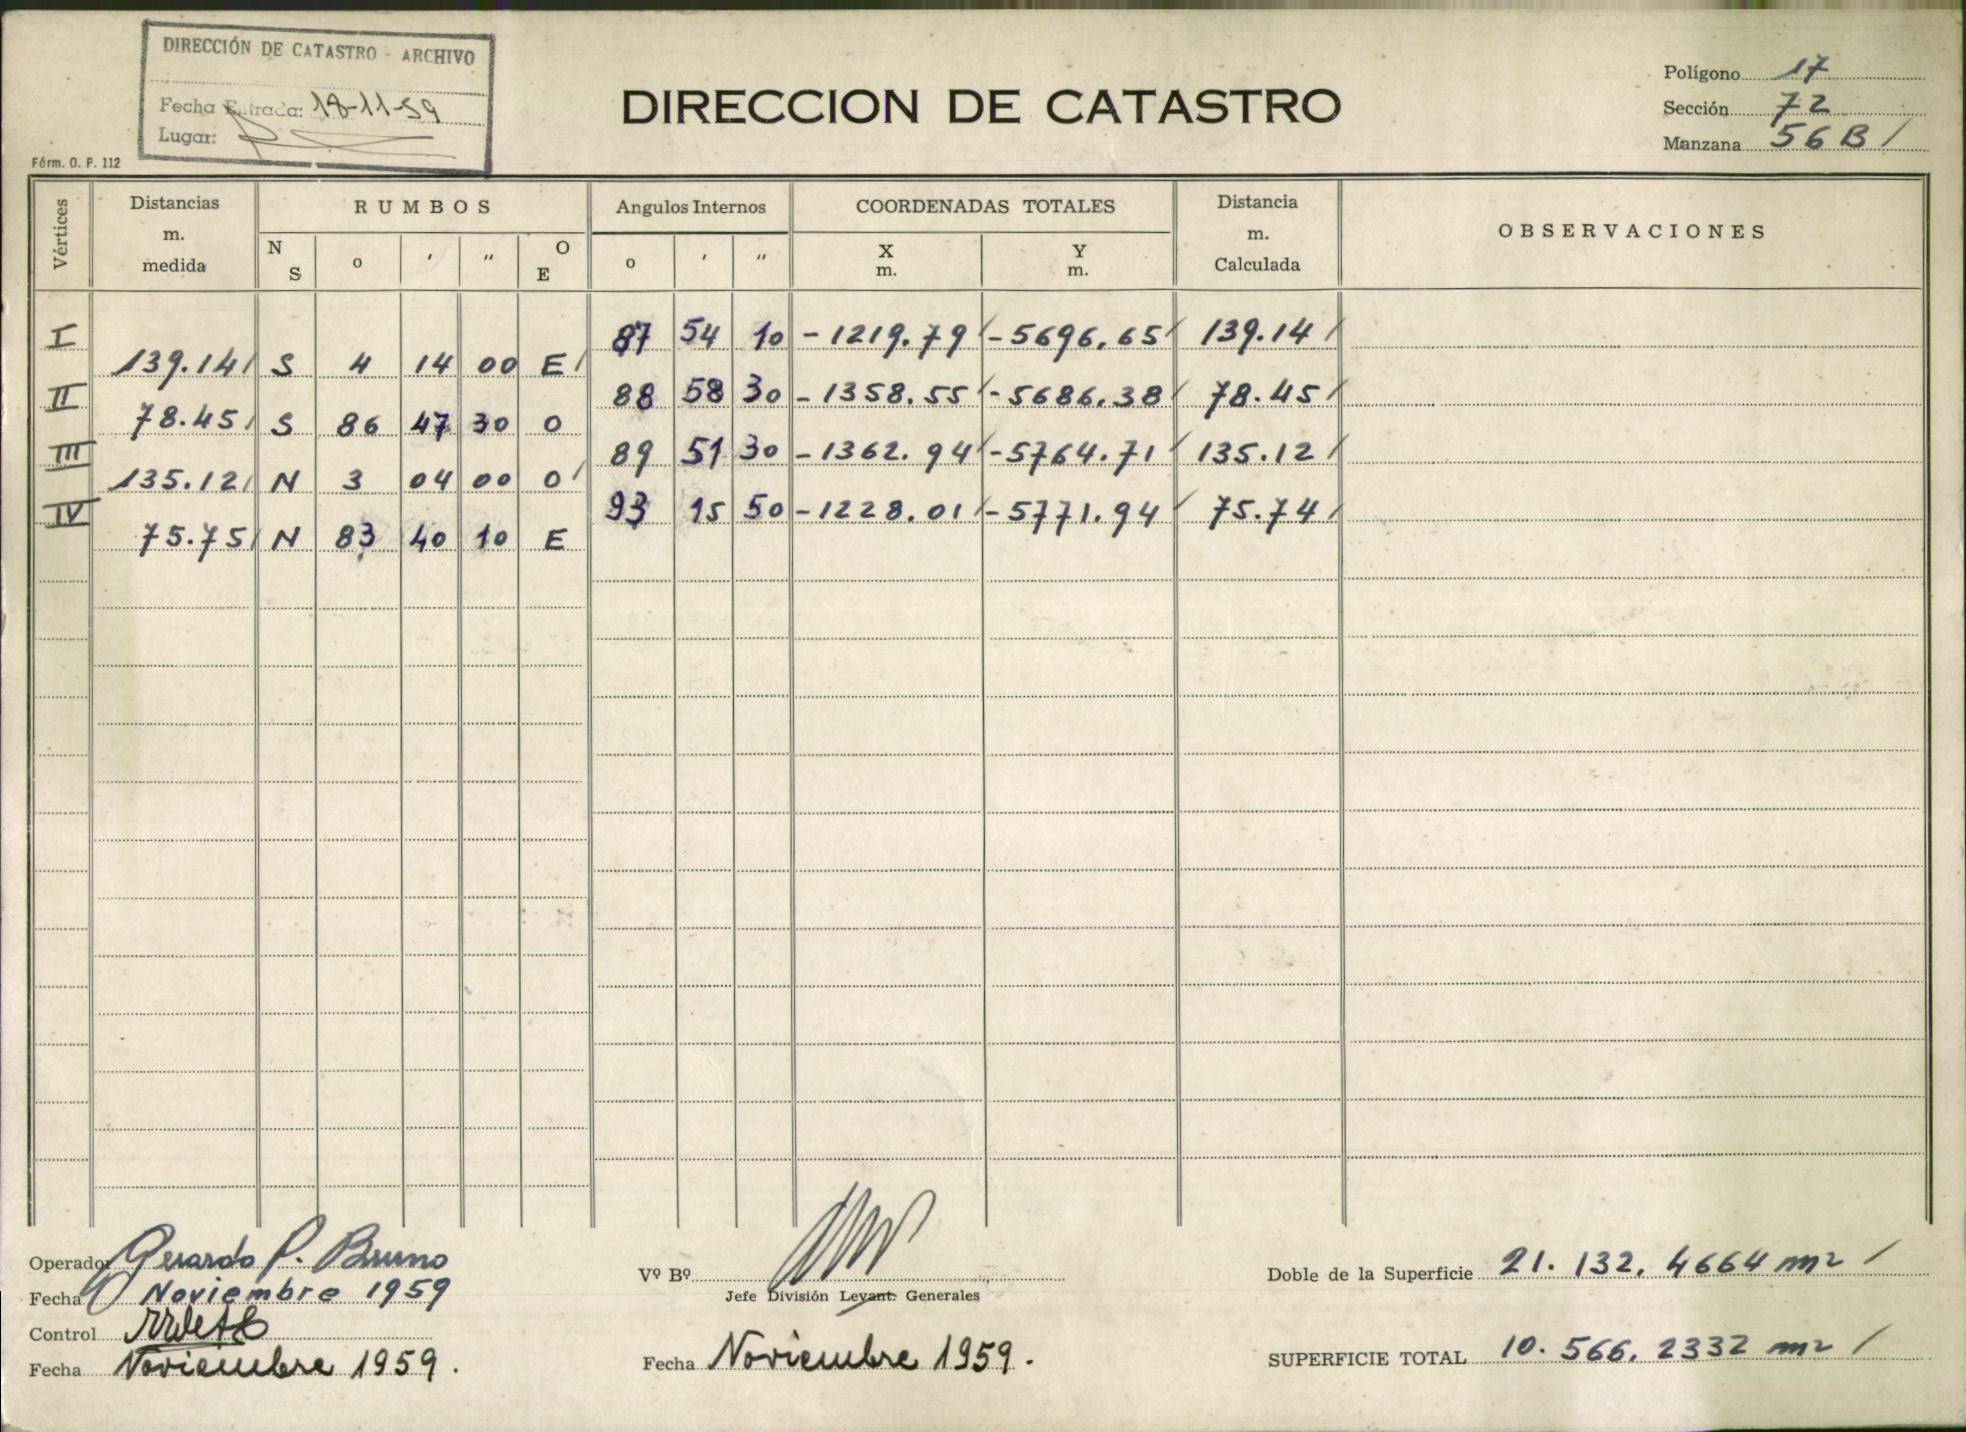 DIRECCIÓN DE CATASTRO - ARCHIVO
Fecha Entrada: 18-11-59
Lugar:
Fórm. O. P. 112
DIRECCION DE CATASTRO
Polígono 17
Sección 72
Manzana 56 B /
Vértices
Distancias m. medida
RUMBOS
N S
o
′
″
O E
Angulos Internos
o
′
″
COORDENADAS TOTALES
X m.
Y m.
Distancia m. Calculada
OBSERVACIONES
I 87 54 10 -1219.79/ -5696.65/ 139.14/
139.14/ S 4 14 00 E/
II 88 58 30 -1358.55/ -5686.38/ 78.45/
78.45/ S 86 47 30 O
III 89 51 30 -1362.94/ -5764.71/ 135.12/
135.12/ N 3 04 00 O/
IV 93 15 50 -1228.01/ -5771.94/ 75.74/
75.75/ N 83 40 10 E
Operador Gerardo P. Bruno
Fecha Noviembre 1959
Control
Fecha Noviembre 1959.
Vº Bº
Jefe División Levant. Generales
Fecha Noviembre 1959.
Doble de la Superficie 21. 132, 4664 m2 /
SUPERFICIE TOTAL 10. 566, 2332 m2 /